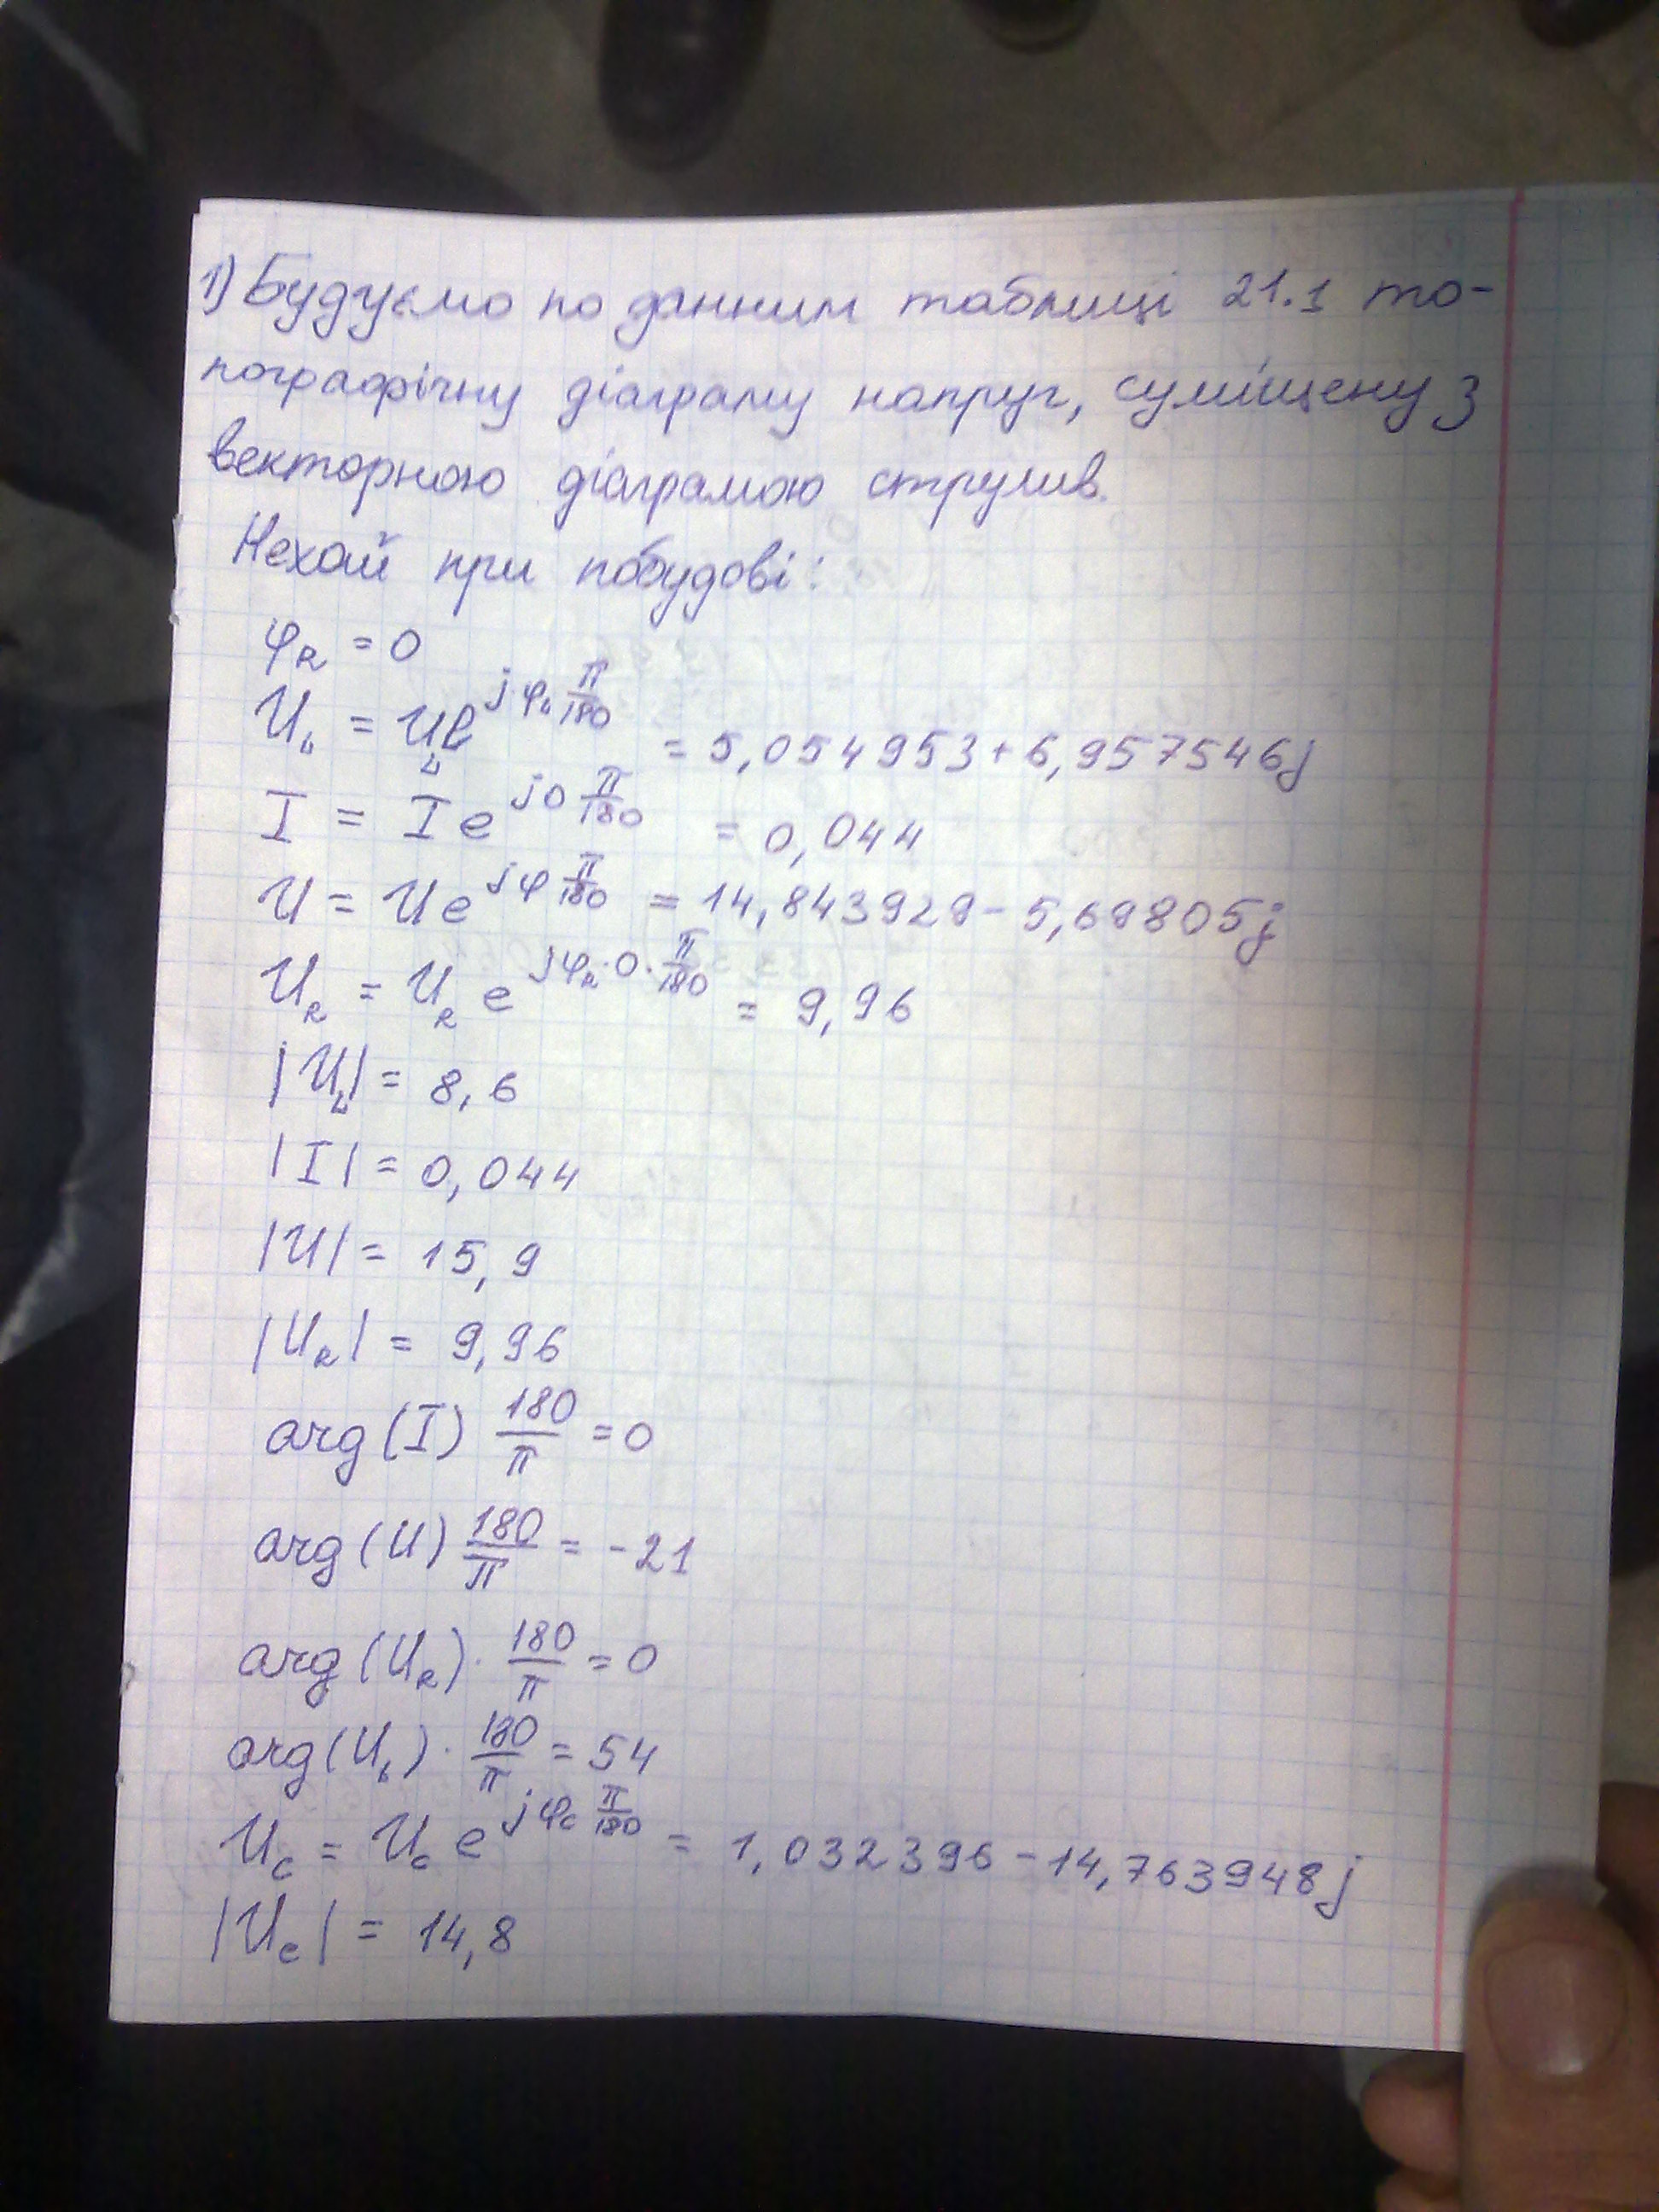 1) Будуємо по данним таблиці 21.1 то-
пографічну діаграму напруг, суміщену з
векторною діаграмою струмів.
Нехай при побудові:
φ_R = 0
U_L = U_L e^{jφ_L π/180} = 5,054953 + 6,957546j
I = I e^{j0 π/180} = 0,044
U = U e^{jφ π/180} = 14,843929 - 5,69805j
U_R = U_R e^{jφ_R·0·π/180} = 9,96
|U_L| = 8,6
|I| = 0,044
|U| = 15,9
|U_R| = 9,96
arg(I) 180/π = 0
arg(U) 180/π = -21
arg(U_R)· 180/π = 0
arg(U_L)· 180/π = 54
U_C = U_C e^{jφ_C π/180} = 1,032396 - 14,763948j
|U_C| = 14,8